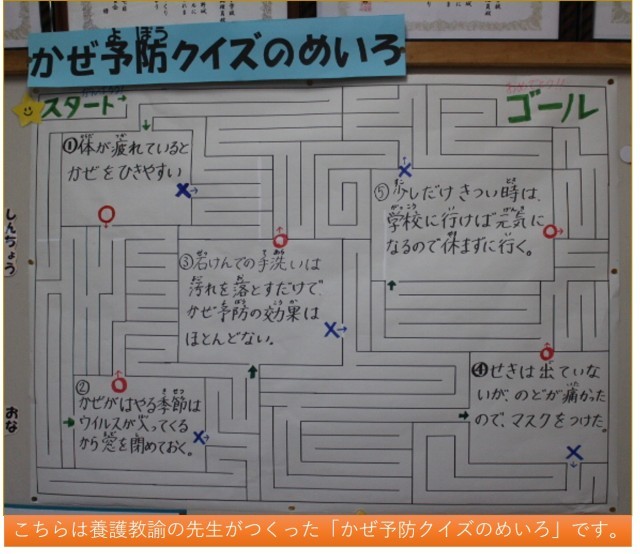 かぜ予防クイズのめいろ
よ ぼう
スタート→
ゴール
①体が疲れていると
かぜをひきやすい
②
かぜがはやる季節は
ウイルスが入ってくる
から窓を閉めておく。
③石けんでの手洗いは
汚れを落とすだけで、
かぜ予防の効果は
ほとんどない。
④せきは出ていな
いが、のどが痛かった
ので、マスクをつけた。
⑤少しだけきつい時は、
学校に行けば元気に
なるので休まずに行く。
しんちょう
おな
こちらは養護教諭の先生がつくった「かぜ予防クイズのめいろ」です。